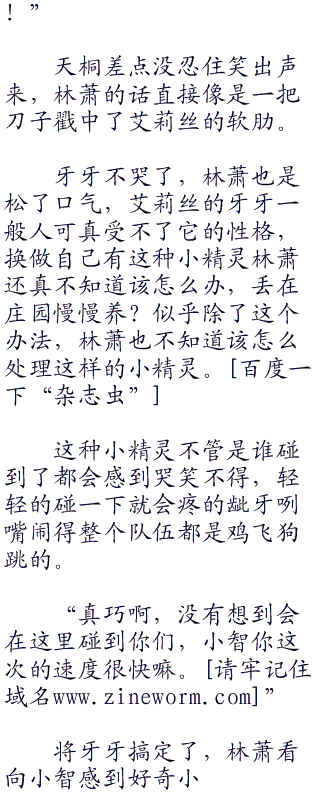 ！”
天桐差点没忍住笑出声
来，林萧的话直接像是一把
刀子戳中了艾莉丝的软肋。
牙牙不哭了，林萧也是
松了口气，艾莉丝的牙牙一
般人可真受不了它的性格，
换做自己有这种小精灵林萧
还真不知道该怎么办，丢在
庄园慢慢养？似乎除了这个
办法，林萧也不知道该怎么
处理这样的小精灵。[百度一
下“杂志虫”]
这种小精灵不管是谁碰
到了都会感到哭笑不得，轻
轻的碰一下就会疼的龇牙咧
嘴闹得整个队伍都是鸡飞狗
跳的。
“真巧啊，没有想到会
在这里碰到你们，小智你这
次的速度很快嘛。[请牢记住
域名www.zineworm.com]”
将牙牙搞定了，林萧看
向小智感到好奇小